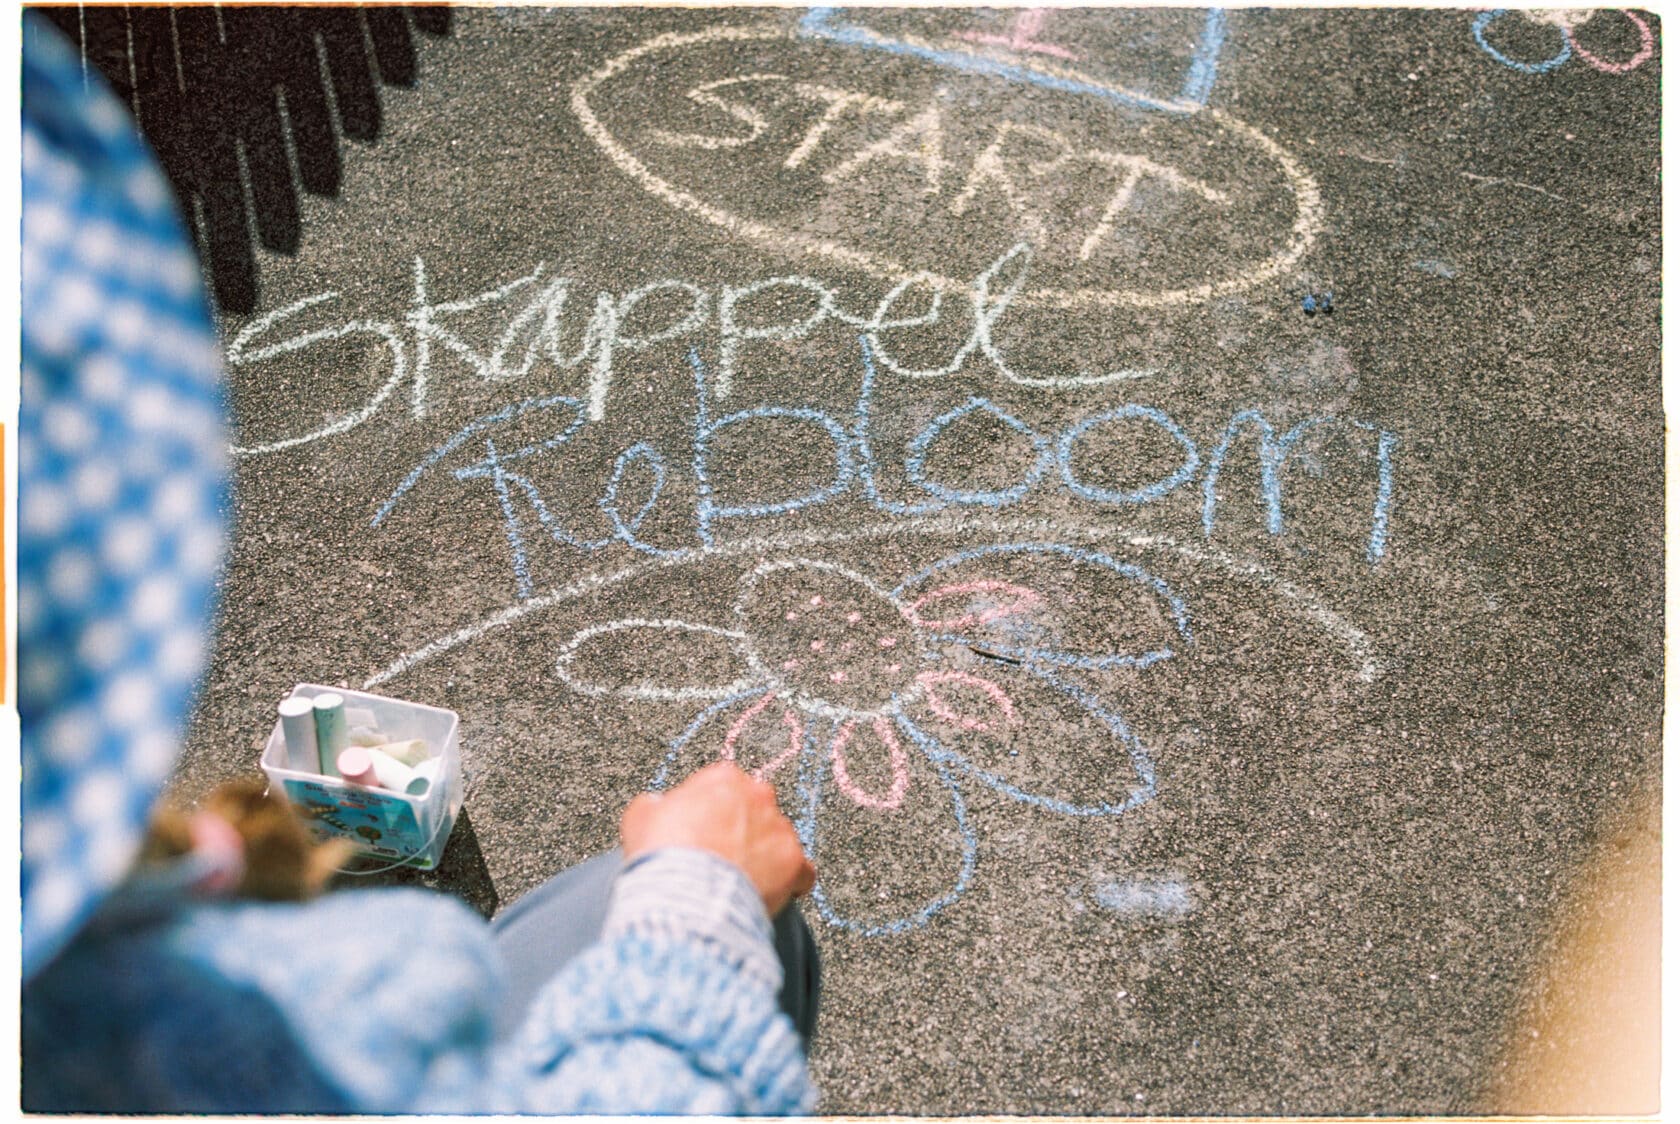 1
START
Skappel
Rebloom